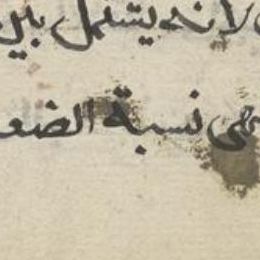 لانه يشتمل بلى
هى نسبة الضعـ